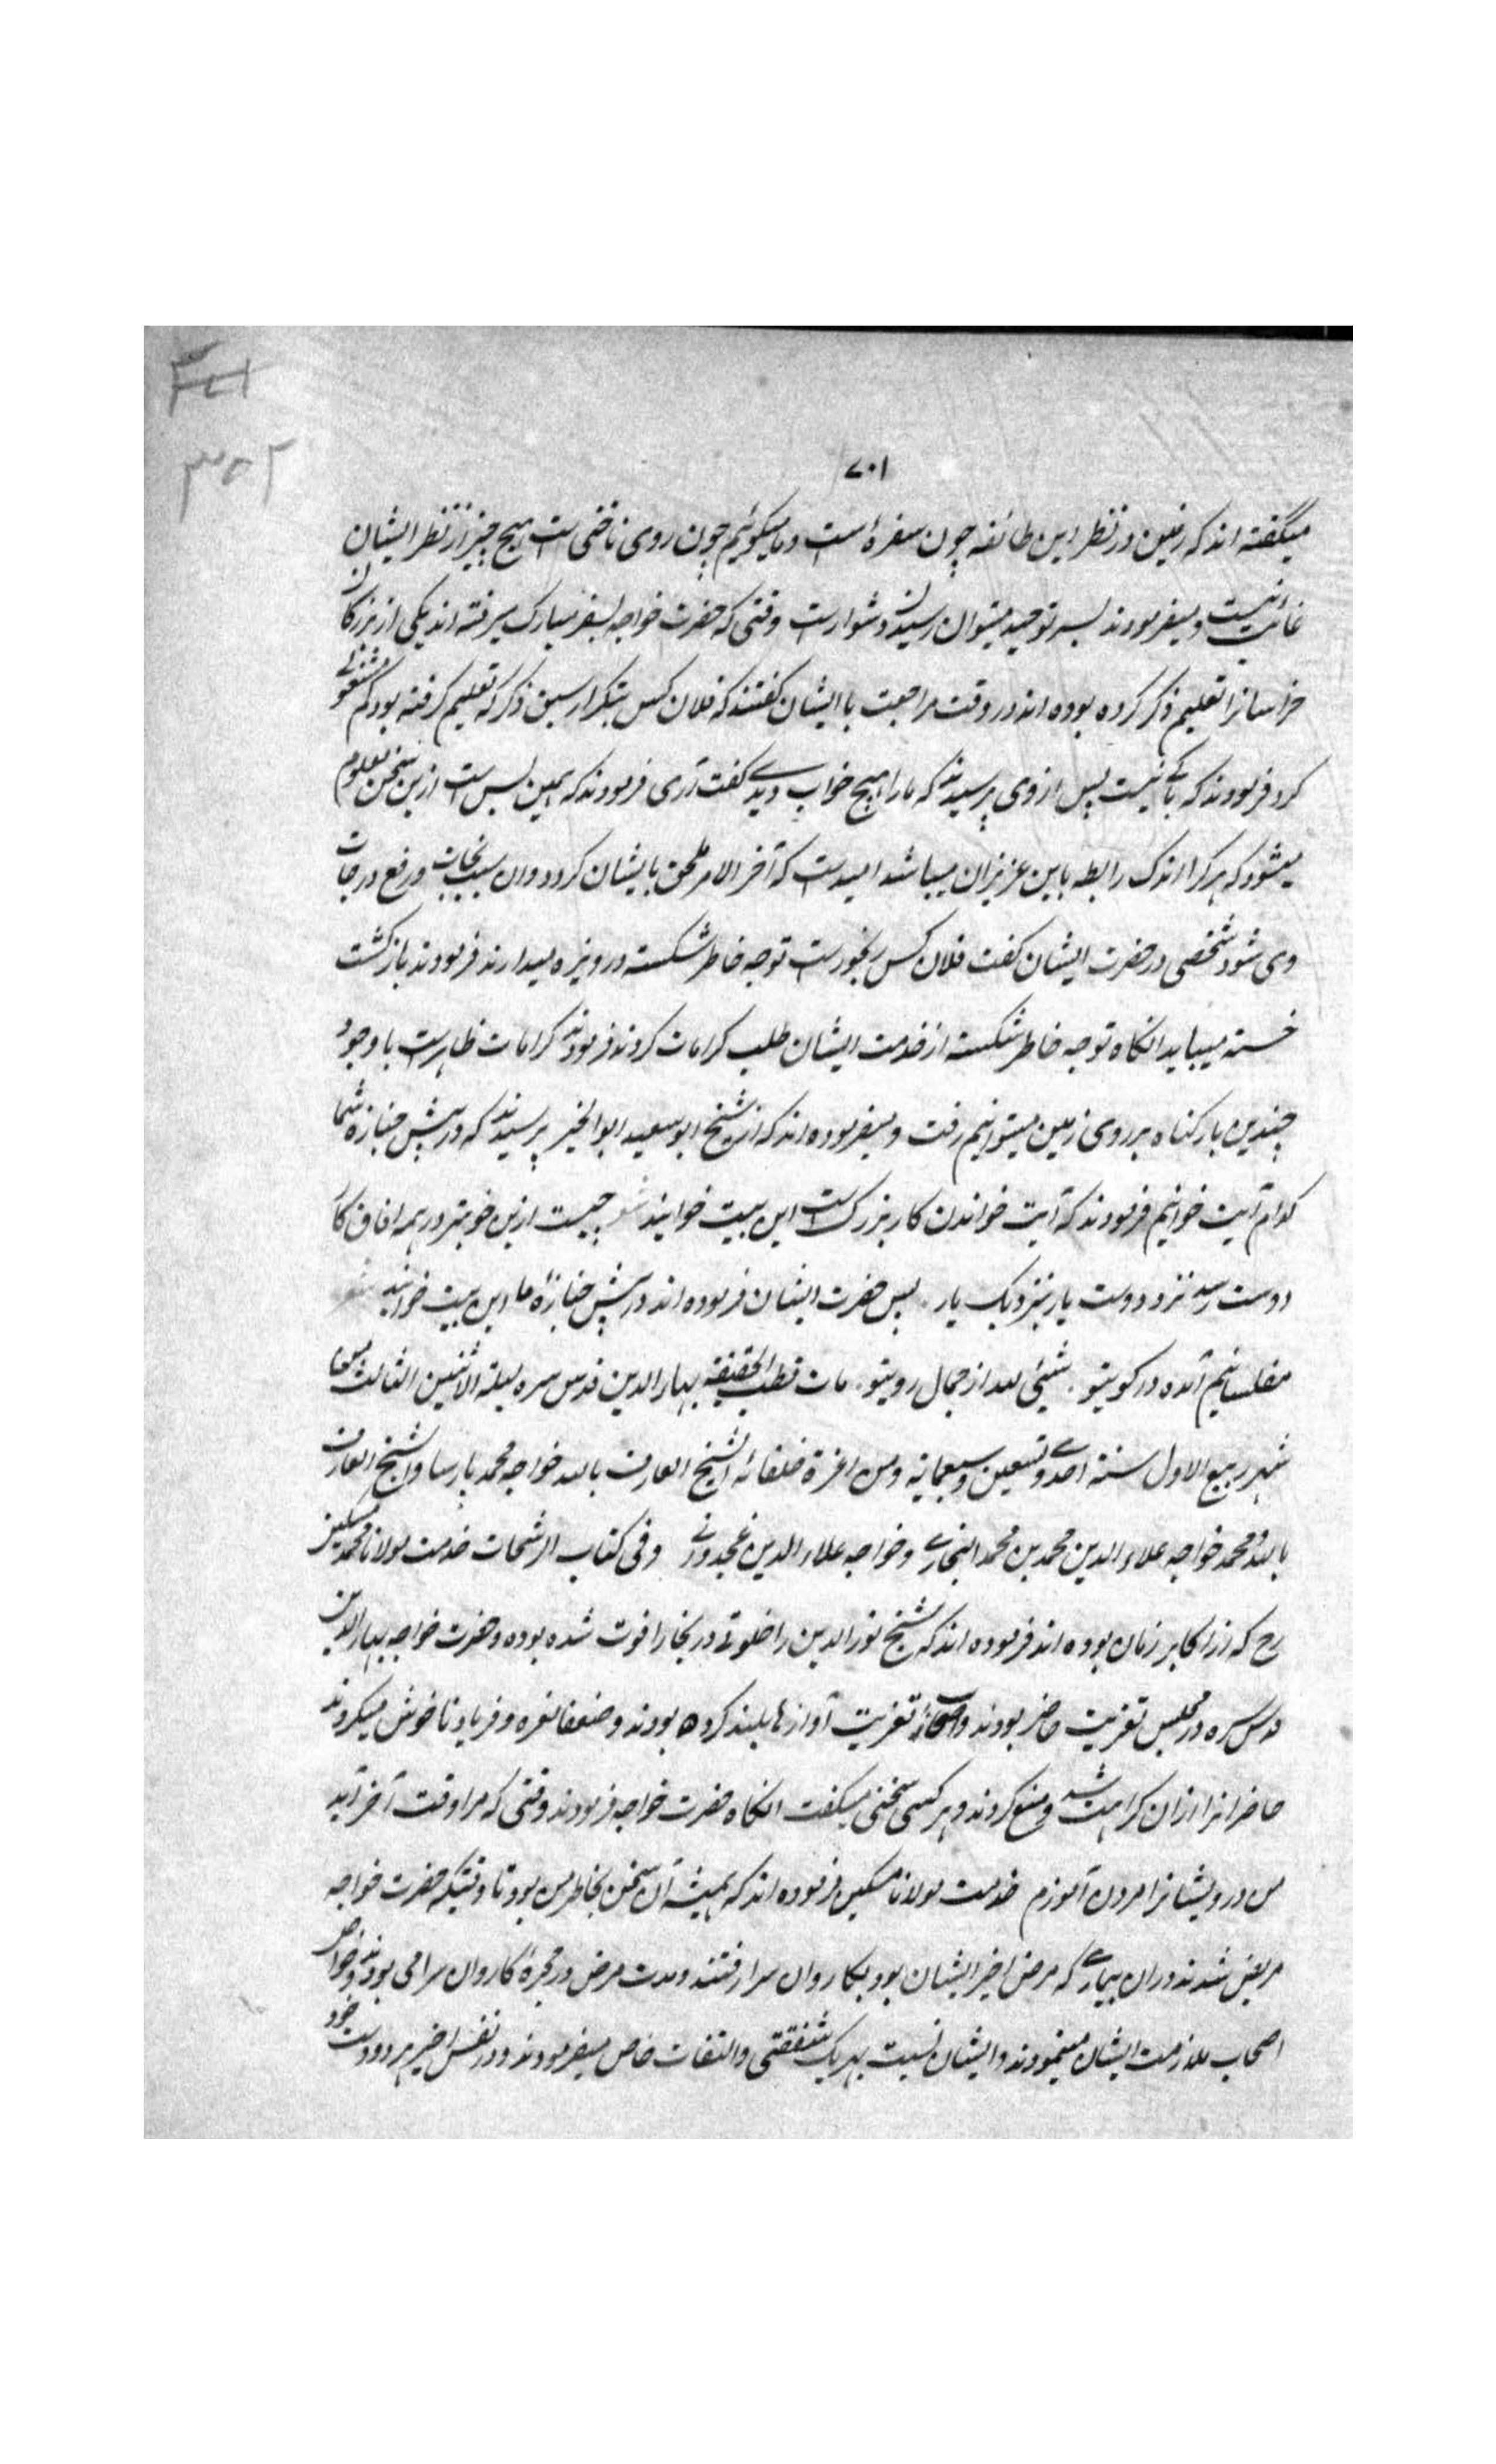 ۳۵۱
۳۵۲
۷۰۱
میگفته اند که زمین در نظر این طائفه چون سفرهٔ است و ما میگوئیم چون روی ناخنی است هیچ چیز از نظر ایشان
غائب نیست و میفرمودند بسر توحید میتوان رسیدن دشوار است وقتی که حضرت خواجه بسفر مبارک میرفته اند یکی از بزرگان
خراسانرا تعلیم ذکر کرده بوده اند در وقت مراجعت با ایشان گفتند که فلان کس بتکرار سبق ذکر که تعلیم گرفته بود کم مشغولی
کرد فرمودند که باکی نیست پس از وی پرسیدند که ما را هیچ خواب دیدی گفت آری فرمودند که همین بس است ازین سخن معلوم
میشود که هر کرا اندک رابطه باین عزیزان میباشد امید است که آخر الامر ملحق بایشان گردد و آن سبب نجات و رفع درجات
وی شود شخصی در حضرت ایشان گفت فلان کس رنجور است توجه خاطر شکسته دریوزه میدارند فرمودند بازگشت
خسته میباید انگاه توجه خاطر شکسته از خدمت ایشان طلب کرامات کردند فرمودند کرامات ظاهر است با وجود
چندین بار گناه بر روی زمین میتوانیم رفت و میفرموده اند که از شیخ ابو سعید ابو الخیر پرسیدند که در پیش جنازه شما
کدام آیت خوانیم فرمودند که آیت خواندن کار بزرگ است این بیت خوانید شعر چیست ازین خوبتر در همه افاق کار
دوست رسد نزد دوست یار بنزدیک یار . پس حضرت ایشان فرموده اند در پیش جنازهٔ ما این بیت خوانید شعر
مفلسانیم آمده در کوی تو . شیئی لله از جمال روی تو . مات قطب الحقیقه بهاء الدین قدس سره لیلة الاثنین الثالث من
شهر ربیع الاول سنة احدی و تسعین و سبعمایة و من اعزة خلفائه الشیخ العارف بالله خواجه محمد پارسا و الشیخ العارف
بالله محمد خواجه علاء الدین محمد بن محمد البخاری و خواجه علاء الدین غجدوانی وفی کتاب الرشحات خدمت مولانا محمد مسکین
رح که از اکابر زمان بوده اند فرموده اند که شیخ نور الدین را خلوتی در بخارا فوت شده بوده و حضرت خواجه بهاء الدین
قدس سره در مجلس تعزیت حاضر بودند و اصحاب تعزیت آوازها بلند کرده بودند و ضعفا نعره و فریاد ناخوش میکردند
حاضرانرا ازان کراهت شد و منع کردند و هر کسی سخنی میگفت انگاه حضرت خواجه فرمودند وقتی که مرا وقت آخر آید
من درویشانرا مردن آموزم خدمت مولانا مسکین فرموده اند که همیشه آن سخن بخاطر من بود تا وقتیکه حضرت خواجه
مریض شدند دران بیماری که مرض اخیر ایشان بود بکاروان سرا رفتند و مدت مرض در حجره کاروان سرا می بودند و خواص
اصحاب ملازمت ایشان مینمودند و ایشان نسبت بهر یک شفقتی و التفات خاص میفرمودند و در نفس اخیر هر دو دست خود